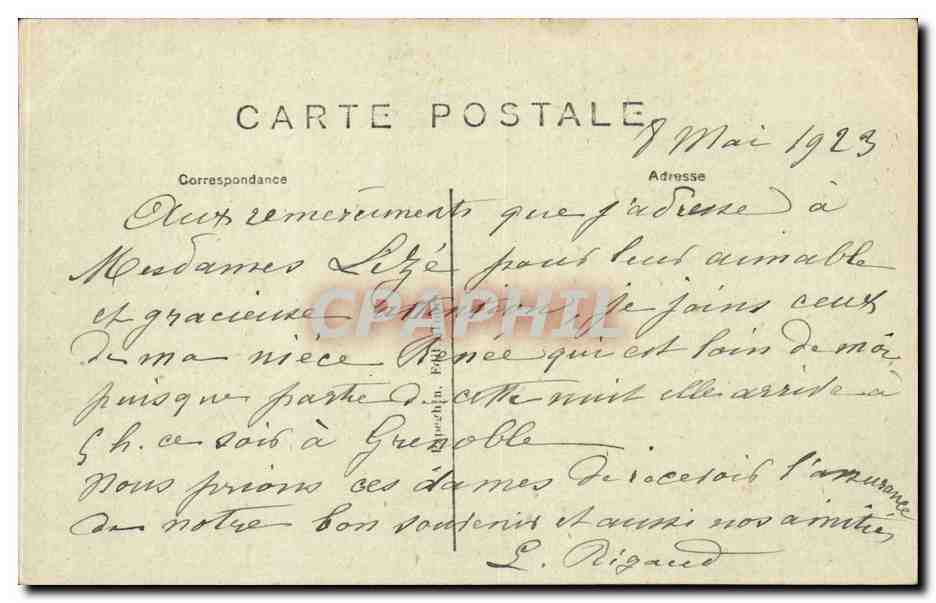 CARTE POSTALE
8 Mai 1923
Correspondance
Adresse
Aux remerciments que j'adresse à
Mesdames Lézé pour leur aimable
et gracieuse attention, je joins ceux
de ma nièce Renée qui est loin de moi,
puisque partie de cette nuit elle arrive à
5 h. ce soir à Grenoble
Nous prions ces dames de recevoir l'assurance
de notre bon souvenir et aussi nos amitiés
L. Rigaud
CPAPHIL